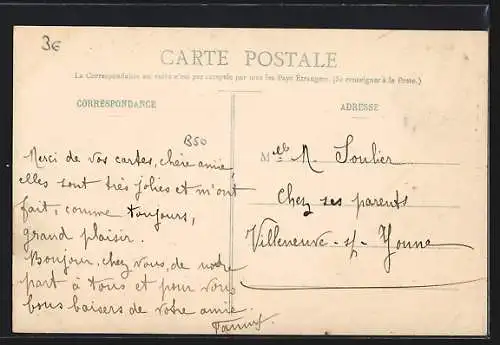 3€
CARTE POSTALE
La Correspondance au verso n'est pas acceptée par tous les Pays Etrangers. (Se renseigner à la Poste.)
CORRESPONDANCE
ADRESSE
B50
Merci de vos cartes, chère amie,
elles sont très jolies et m'ont
fait, comme toujours,
grand plaisir.
Bonjour, chez vous, de notre
part à tous et pour vous
bons baisers de votre amie.
Fanny
Melle M. Soulier
Chez ses parents
Villeneuve-s/-Yonne